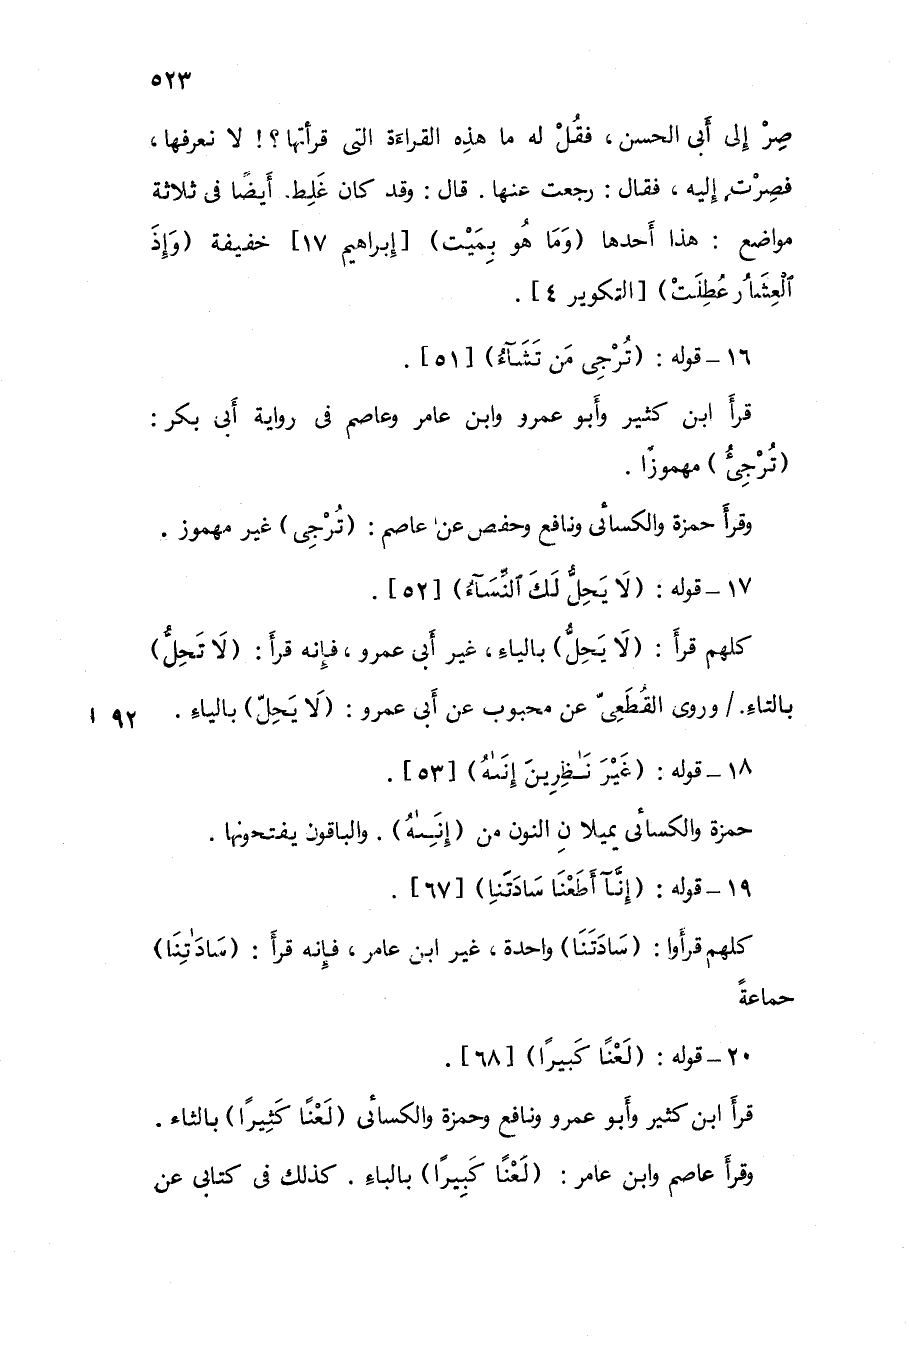 ٥٢٣
صِرْ إلى أَبى الحسن ، فقُلْ له ما هذِه القراءة التى قرأتها ؟ ! لا نعرفها ،
فصِرْت إليه ، فقال : رجعت عنها . قال : وقد كان غَلِط. أَيضًا فى ثلاثة
مواضع : هذا أَحدها (وَمَا هُو بِمَيْت) [إبراهيم ١٧] خفيفة (وَإِذَ
ٱلْعِشَارُ عُطِلَتْ) [التكوير ٤] .
١٦ ــ قوله : (تُرْجِى مَن تَشَآءُ) [٥١] .
قرأَ ابن كثير وأَبو عمرو وابن عامر وعاصم فى رواية أَبى بكر :
(تُرْجِئُ) مهموزًا .
وقرأَ حمزة والكسائى ونافع وحفص عن عاصم : (تُرْجِى) غير مهموز .
١٧ ــ قوله : (لَا يَحِلُّ لَكَ ٱلنِّسَآءُ) [٥٢] .
كلهم قرأَ : (لَا يَحِلُّ) بالياءِ ، غير أَبى عمرو ، فإنه قرأَ : (لَا تَحِلُّ)
بالتاءِ. / وروى القُطَعِىّ عن محبوب عن أَبى عمرو : (لَا يَحِلّ) بالياءِ . ٩٢ ا
١٨ ــ قوله : (غَيْرَ نَٰظِرِينَ إِنَىٰهُ) [٥٣] .
حمزة والكسائى يميلان النون من (إِنَىٰهُ) . والباقون يفتحونها .
١٩ ــ قوله : (إِنَّآ أَطَعْنَا سَادَتَنَا) [٦٧] .
كلهم قرأَوا : (سَادَتَنَا) واحدة ، غير ابن عامر ، فإنه قرأَ : (سَادَٰتِنَا)
حماعةً
٢٠ ــ قوله : (لَعْنًا كَبيرًا) [٦٨] .
قرأَ ابن كثير وأَبو عمرو ونافع وحمزة والكسائى (لَعْنًا كَثِيرًا) بالثاء .
وقرأَ عاصم وابن عامر : (لَعْنًا كَبِيرًا) بالباءِ . كذلك فى كتابى عن